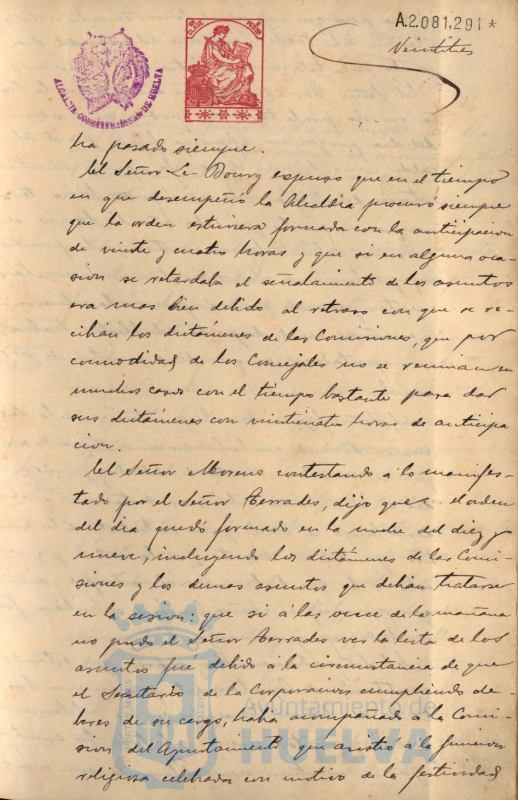 A.2.081,291*
Veintitres
ALCALDIA CONSTITUCIONAL DE HUELVA
ha pasado siempre.
El Señor Le-Bourg espuso que en el tiempo
en que desempeñó la Alcaldia procuró siempre
que la orden estuviera formada con la anticipacion
de veinte y cuatro horas y que si en alguna oca-
sion se retardaba el señalamiento de los asuntos
era mas bien debido al retraso con que se re-
cibian los dictámenes de las Comisiones, que por
comodidad de los Concejales no se reunian en
muchos casos con el tiempo bastante para dar
sus dictámenes con veinticuatro horas de anticipa
cion.
El Señor Moreno contestando á lo manifes-
tado por el Señor Terrades, dijo que el orden
del dia quedó formado en la noche del diez y
nueve, incluyendo los dictámenes de las Comi-
siones y los demas asuntos que debian tratarse
en la sesion: que si á las once de la mañana
no pudo el Señor Terrades ver la lista de los
asuntos fue debido á la circunstancia de que
el Secretario de la Corporacion cumpliendo de-
beres de su cargo, habia acompañado á la Comi-
sion del Ayuntamiento que asistió á la funcion
religiosa celebrada con motivo de la festividad
Ayuntamiento de
HUELVA